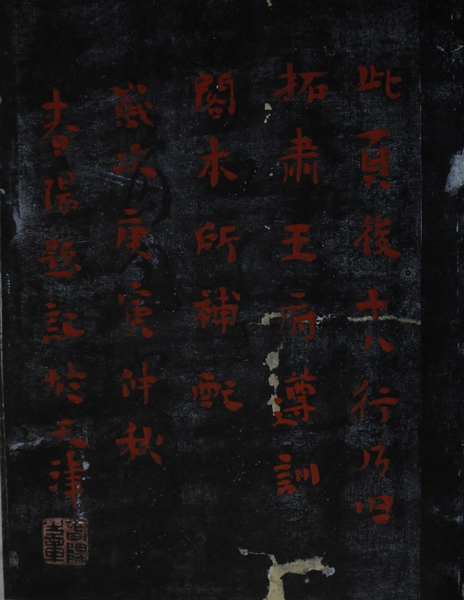 此頁後十八行乃旧
拓肅王府遵訓
閣本所補配
歲次庚寅仲秋
陽題記於天津